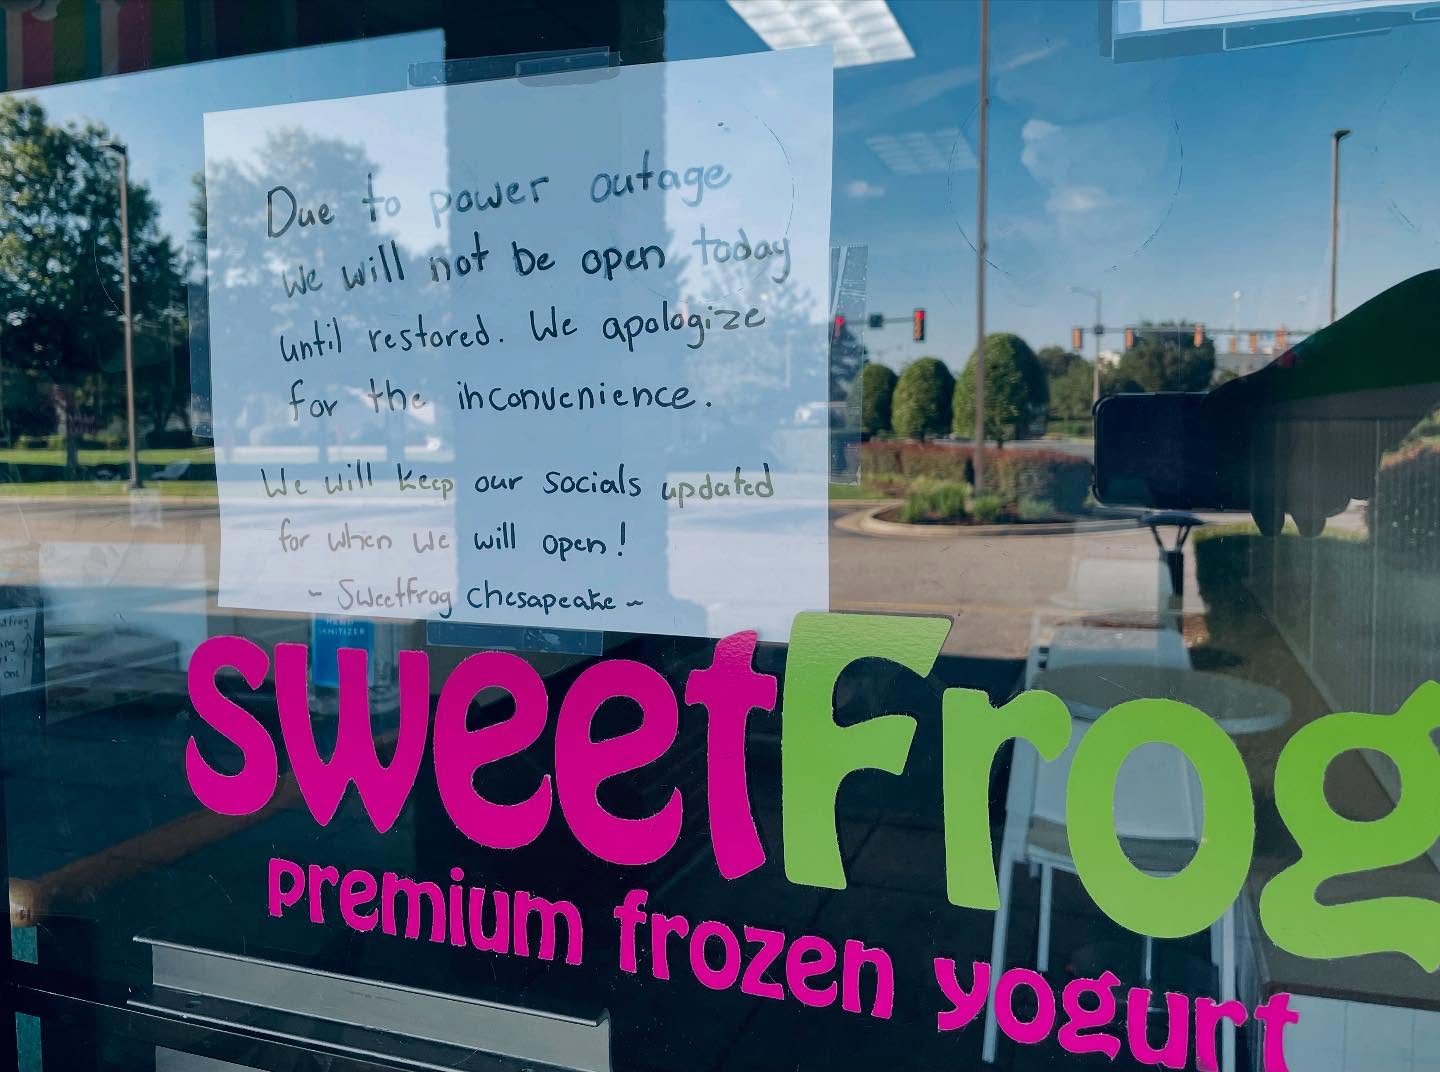 Due to power outage
we will not be open today
until restored. We apologize
for the inconvenience.
We will keep our socials updated
for when we will open!
~ SweetFrog Chesapeake ~
HAND
SANITIZER
sweetFrog
premium frozen yogurt